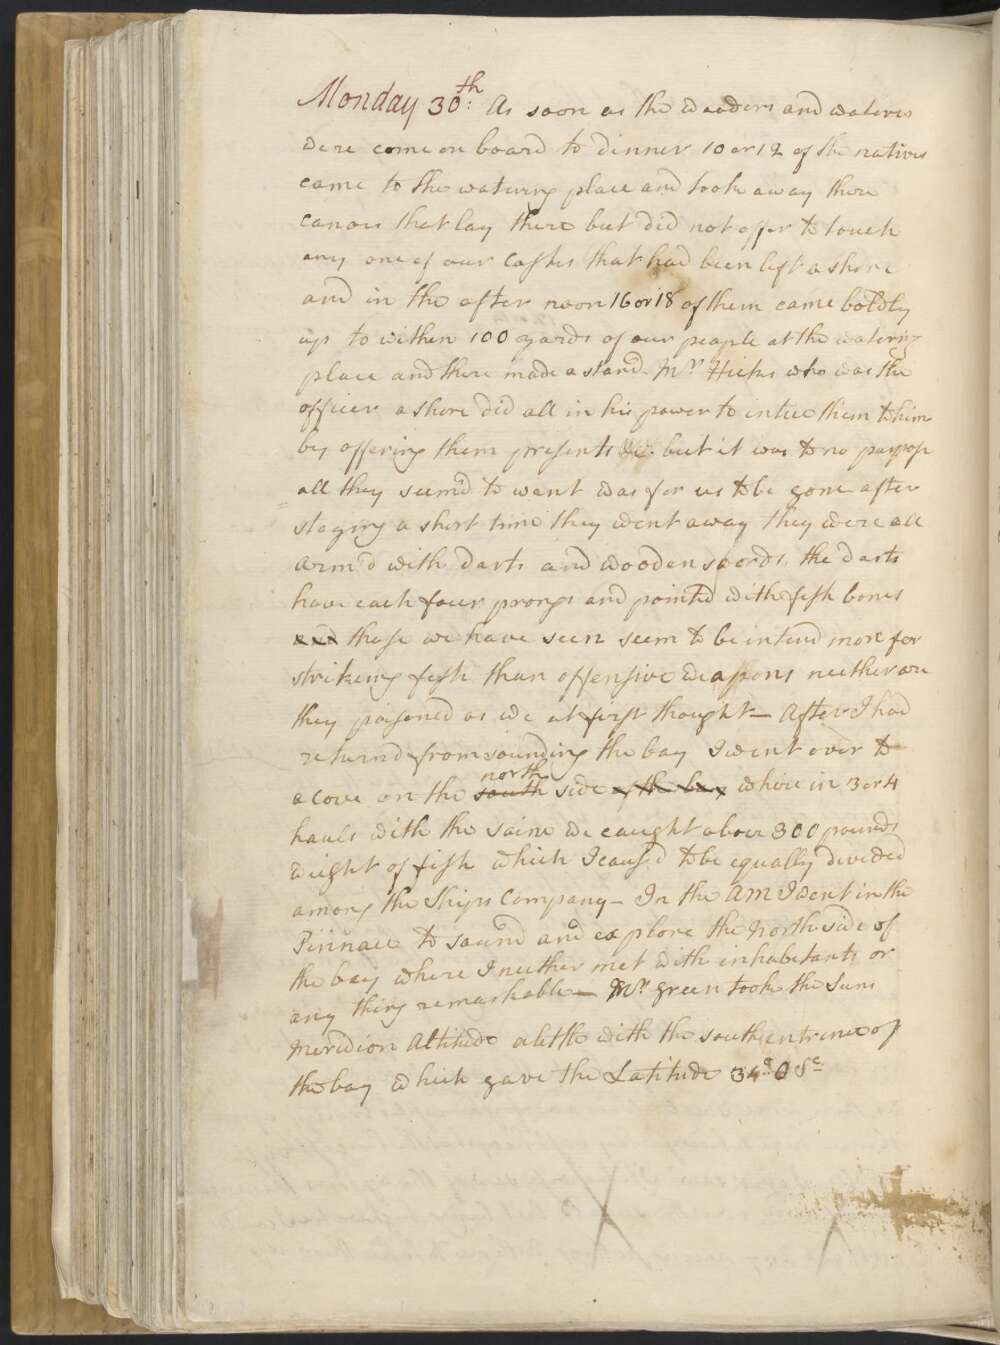 Monday 30th: As soon as the wooders and waterers
were come on board to dinner 10 or 12 of the natives
came to the watering place and took away there
canoes that lay there but did not offer to touch
any one of our Casks that had been left a shore
and in the after noon 16 or 18 of them came boldly
up to within 100 yards of our people at the watering
place and there made a stand. Mr Hicks who was the
officer a shore did all in his power to intice them to him
by offering them presents &c. but it was to no purpose
all they seem'd to want was for us to be gone. after
staying a short time they went away they were all
Arm'd with darts and wooden swords, the darts
have each four prongs and pointed with fish bones
and those we have seen seem to be intend more for
striking fish than offensive weapons neither are
they poisoned as we at first thought — After I had
return'd from sounding the bay I went over to
a cove on the south north side of the bay where in 3 or 4
hauls with the saine we caught above 300 pounds
weight of fish which I caused to be equally divided
among the Ships Company — In the AM I went in the
Pinnace to sound and explore the North side of
the bay where I neither met with inhabitants or
any thing remarkable — Mr. Green took the Suns
Meridion Altitude a little with the south entrance of
the bay which gave the Latitude 34d. 0 So